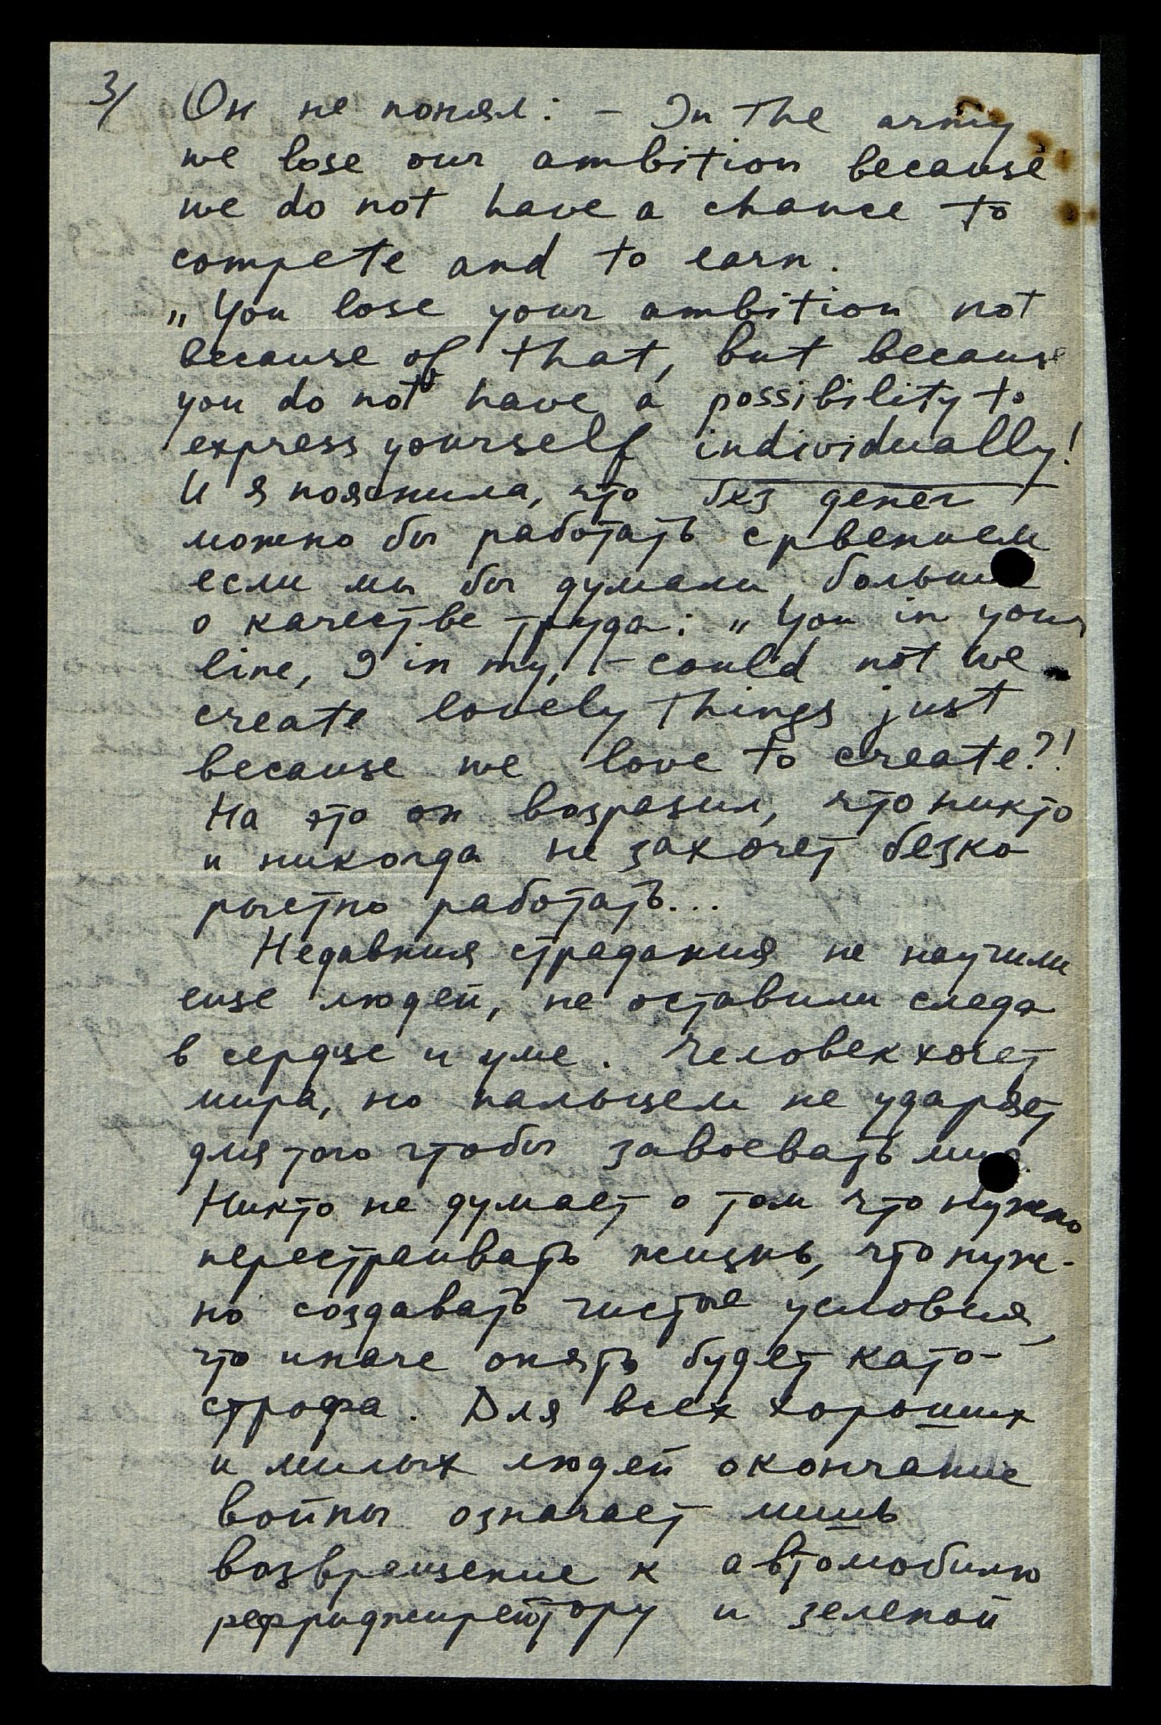 3/ Он не понял: – In the army
we lose our ambition because
we do not have a chance to
compete and to earn.
„You lose your ambition not
because of that, but because
you do not have a possibility to
express yourself individually!
И я пояснила, что без денег
можно бы работать с рвением
если мы бы думали больше
о качестве труда: „You in your
line, I in my, – could not we
create lovely things just
because we love to create?!
На это он возразил, что никто
и никогда не захочет безко
рыстно работать...
Недавния страдания не научили
еще людей, не оставили следа
в сердце и уме. Человек хочет
мира, но пальцем не ударяет
для того чтобы завоевать мир.
Никто не думает о том что нужно
перестраивать жизнь, что нуж-
но создавать чистые условия,
что иначе опять будет като-
строфа. Для всех хороших
и милых людей окончание
войны означает лишь
возвращение к автомобилю
рефриджиретору и зеленой